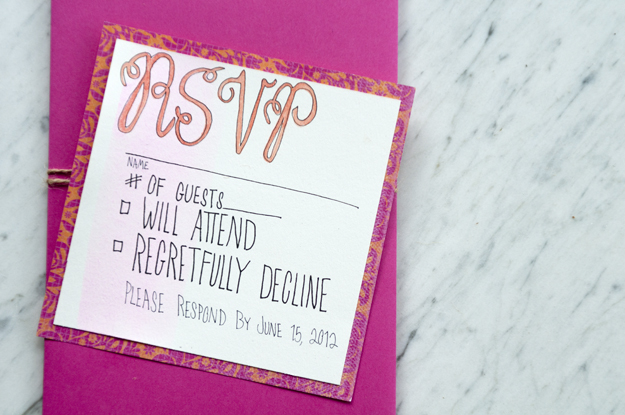 RSVP
NAME
# OF GUESTS
WILL ATTEND
REGRETFULLY DECLINE
PLEASE RESPOND BY JUNE 15, 2012